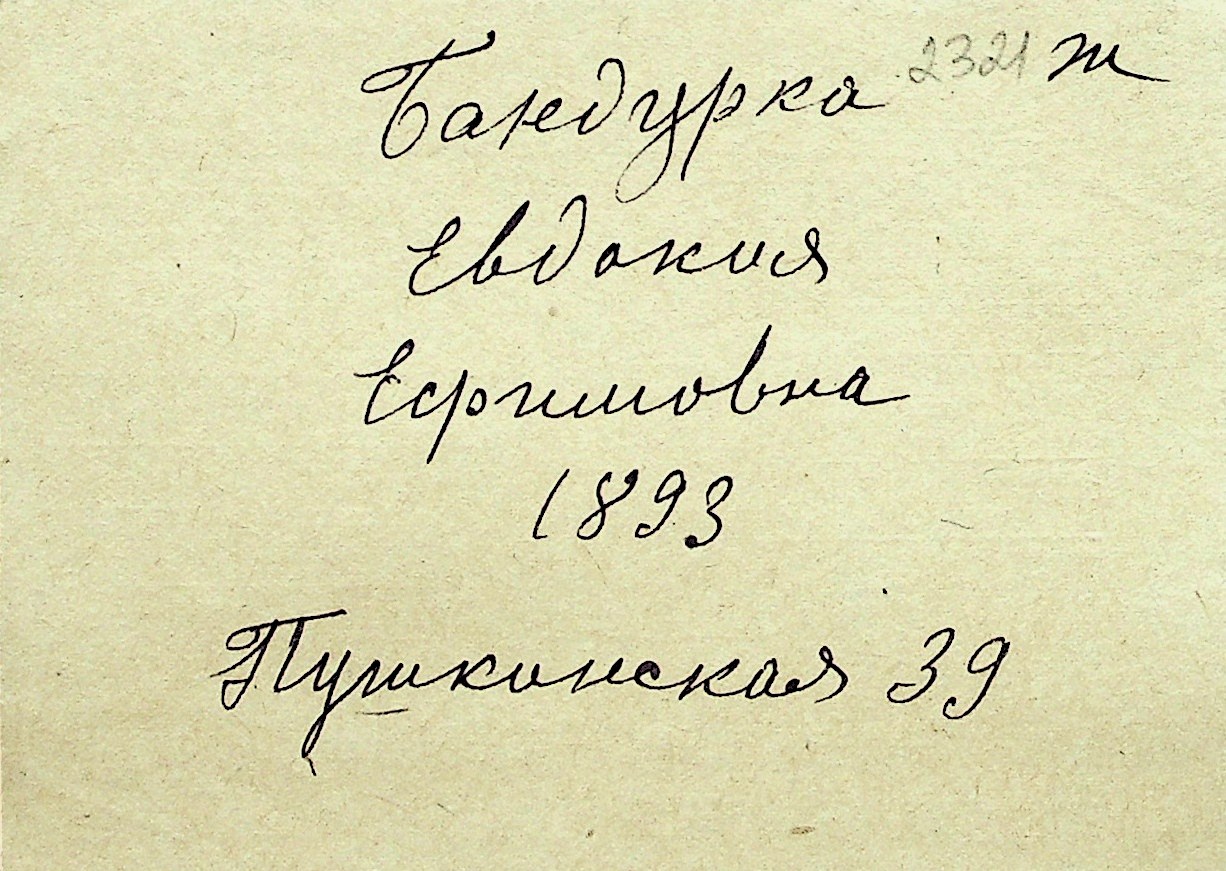 Бандурка 2321 ж
Евдокия
Ефимовна
1893
Пушкинская 39